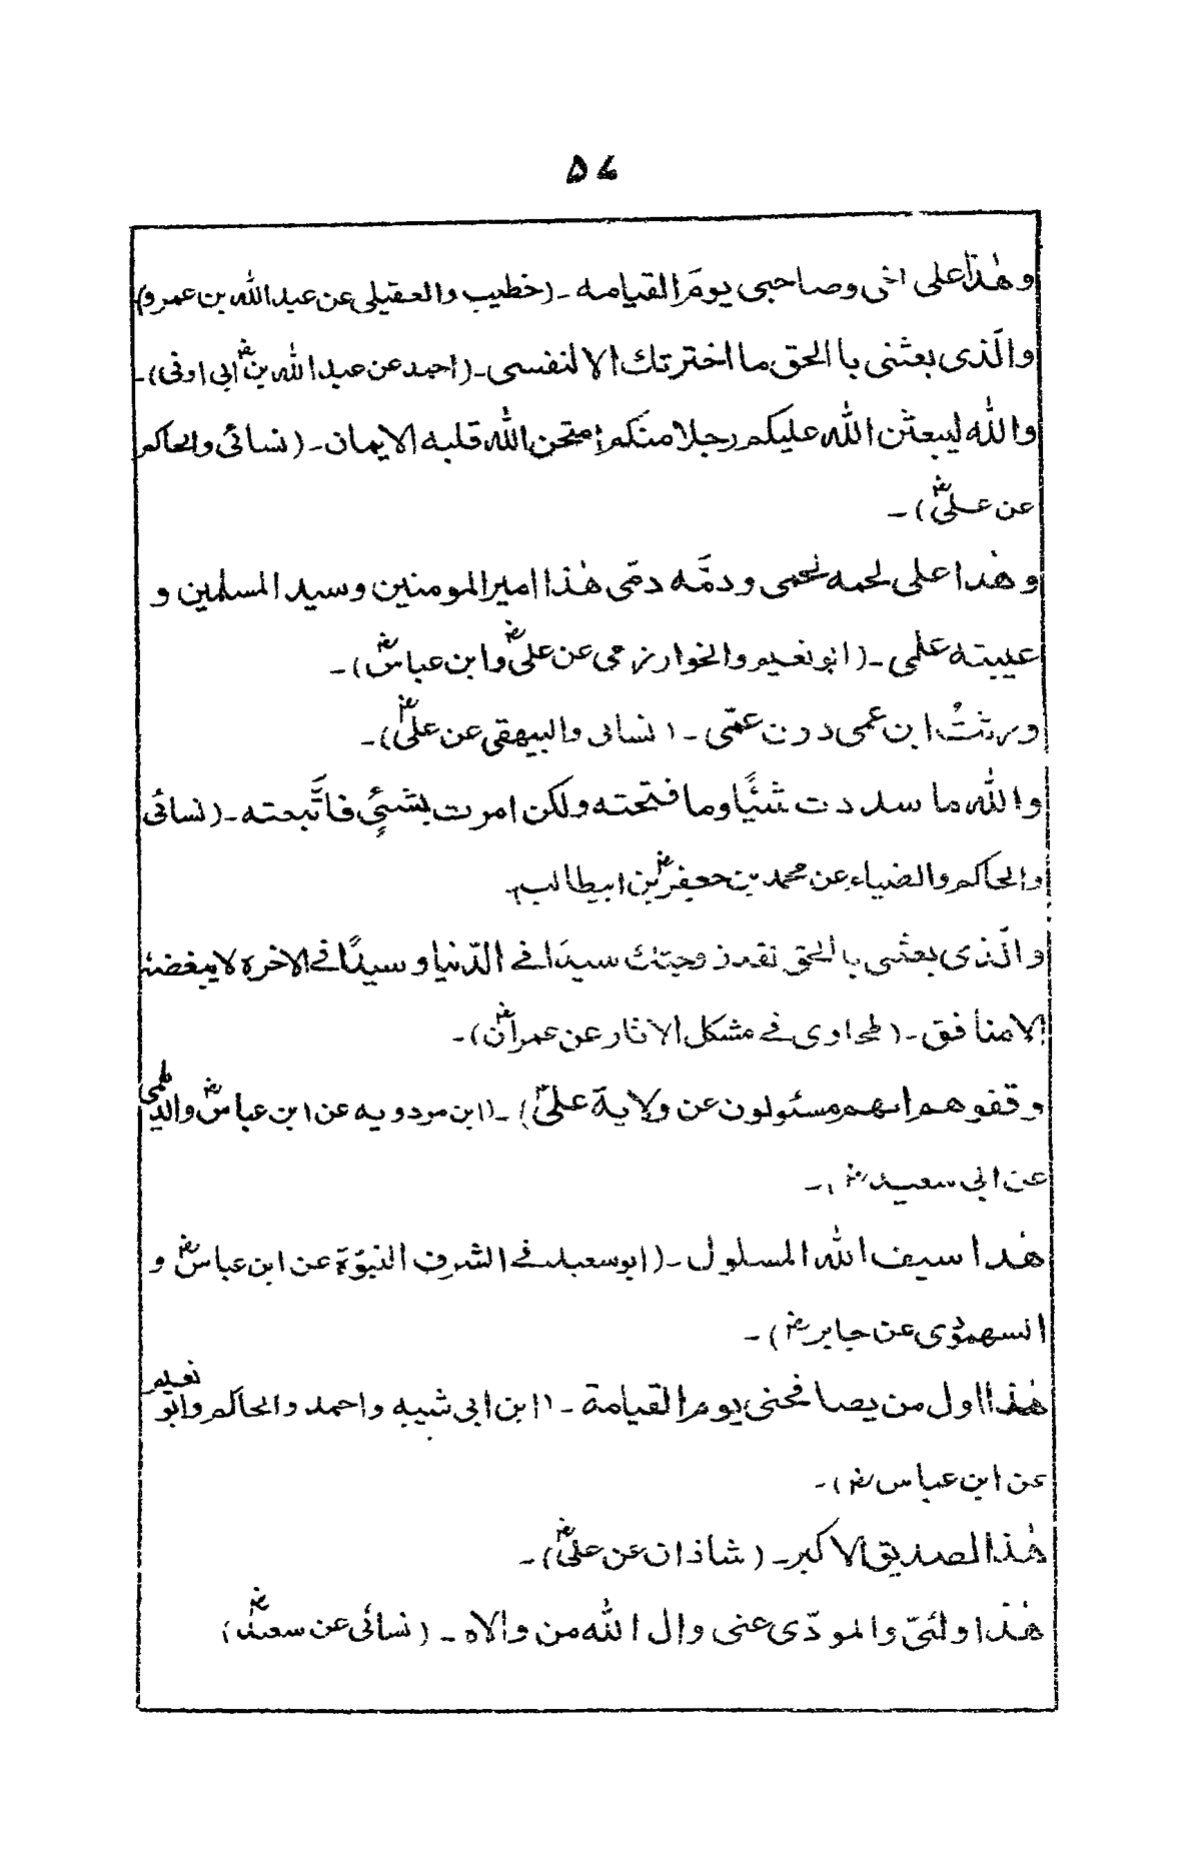 ۵۷
وھٰذا علی اخی وصاحبی یومَ القیامہ ۔ (خطیب والعقیلی عن عبد اللہ بن عمرو)
والّذی بعثنی با الحق ما اخترتك الا لنفسی ۔ (احمد عن عبد اللہ بنؓ ابی اوفی) ۔
واللہ لیبعثن اللہ علیکم رجلا منکم امتحن اللہ قلبہ الایمان ۔ (نسائی والحاکم
عن علیؓ) ۔
وھٰذا علی لحمہ لحمی ودمّہ دمّی ھٰذا امیر المومنین وسید المسلمین و
عیبتہ علمی ۔ (ابو نعیم والخوارزمی عن علیؓ وابن عباسؓ) ۔
ورثتُ ابن عمی دون عمّی ۔ (نسائی والبیھقی عن علیؓ) ۔
واللہ ما سددت شئیًا وما فتحتہ ولکن امرت بشئیٍ فاتَّبعتہ ۔ (نسائی
والحاکم والضیاء عن محمد بن جعفرؓ بن ابیطالب)
والّذی بعثنی بالحق لقد زوجتك سیدًا فے الدّنیا وسیدًا فے الاخرہ لا یبغضہ
الا منافق ۔ (طحاوی فے مشکل الاثار عن عمرانؓ) ۔
وقفوھم انھم مسئولون عن ولایة علیؓ) ۔ (ابن مردویہ عن ابن عباسؓ والدیلمی
عن ابی سعیدؓ) ۔
ھٰذا سیف اللہ المسلول ۔ (ابو سعید فے الشرف النبوّة عن ابن عباسؓ و
السھمؤدی عن جابرؓ) ۔
ھٰذا اول من یصافحنی یوم القیامة ۔ (ابن ابی شیبہ واحمد والحاکم وابو نعیم
عن ابن عباسؓ) ۔
ھٰذا الصدیق الاکبر ۔ (شاذان عن علیؓ) ۔
ھٰذا ولئیّ والمودّی عنی وال اللہ من والاہ ۔ (نسائی عن سعدؓ)